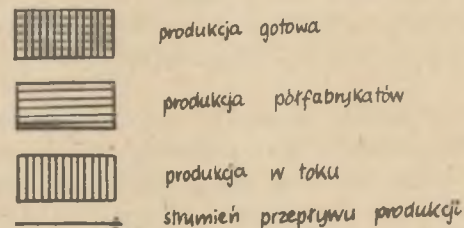 produkcja gotowa
produkcja półfabrykatów
produkcja w toku
strumień przepływu produkcji